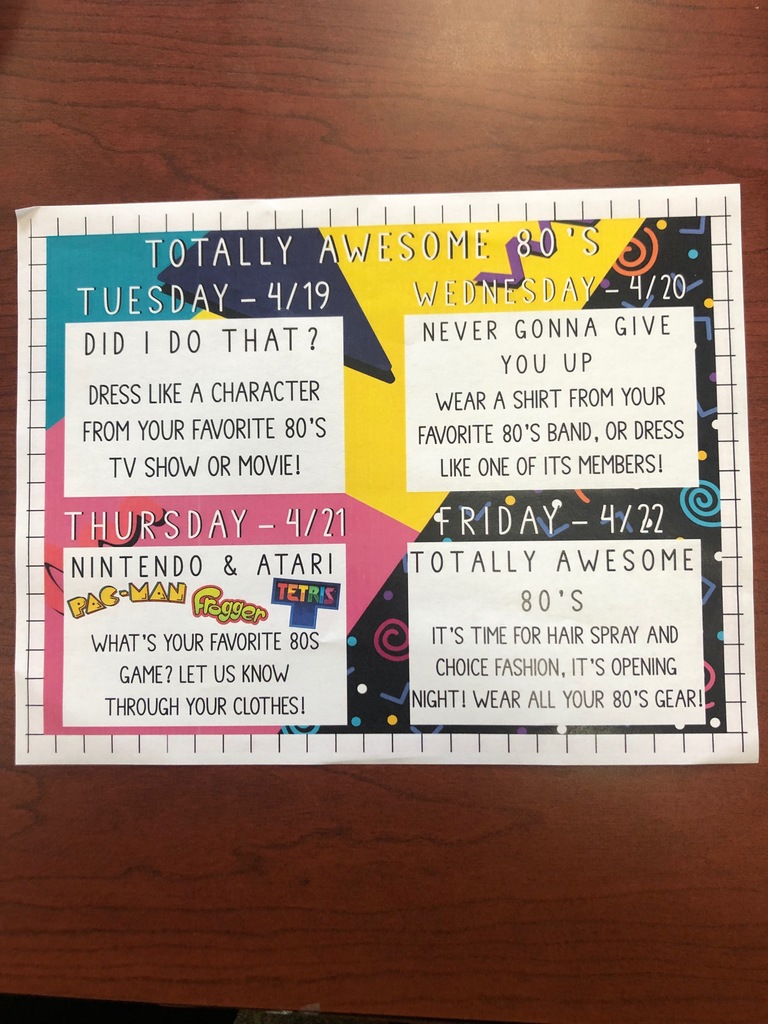 TOTALLY AWESOME 80'S
TUESDAY - 4/19
DID I DO THAT?
DRESS LIKE A CHARACTER
FROM YOUR FAVORITE 80'S
TV SHOW OR MOVIE!
WEDNESDAY - 4/20
NEVER GONNA GIVE
YOU UP
WEAR A SHIRT FROM YOUR
FAVORITE 80'S BAND, OR DRESS
LIKE ONE OF ITS MEMBERS!
THURSDAY - 4/21
NINTENDO & ATARI
PAC-MAN Frogger TETRIS
WHAT'S YOUR FAVORITE 80S
GAME? LET US KNOW
THROUGH YOUR CLOTHES!
FRIDAY - 4/22
TOTALLY AWESOME
80'S
IT'S TIME FOR HAIR SPRAY AND
CHOICE FASHION, IT'S OPENING
NIGHT! WEAR ALL YOUR 80'S GEAR!